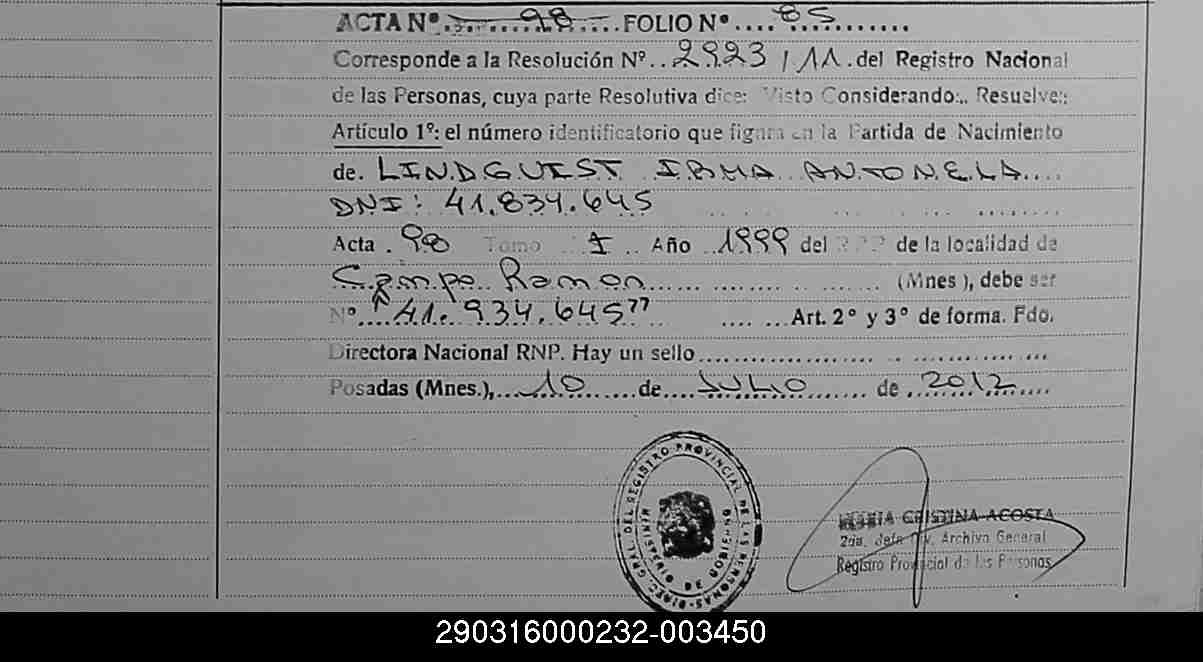 ACTA Nº 98 FOLIO Nº 85
Corresponde a la Resolución Nº 2923 / 11 del Registro Nacional
de las Personas, cuya parte Resolutiva dice: Visto Considerando:.. Resuelve:
Artículo 1º: el número identificatorio que figura en la Partida de Nacimiento
de. LINDGUIST IRMA ANTONELA
DNI: 41.834.645
Acta 98 Tomo I Año 1999 del de la localidad de
Campo Ramon (Mnes), debe ser
Nº "41.934.645" Art. 2º y 3º de forma. Fdo.
Directora Nacional RNP. Hay un sello
Posadas (Mnes.), 10 de JULIO de 2012
DIREC. GRAL. DEL REGISTRO PROVINCIAL DE LAS PERSONAS
MINISTERIO DE GOBIERNO
CRISTINA ACOSTA
2da. Jefa Div. Archivo General
Registro Provincial de las Personas
290316000232-003450